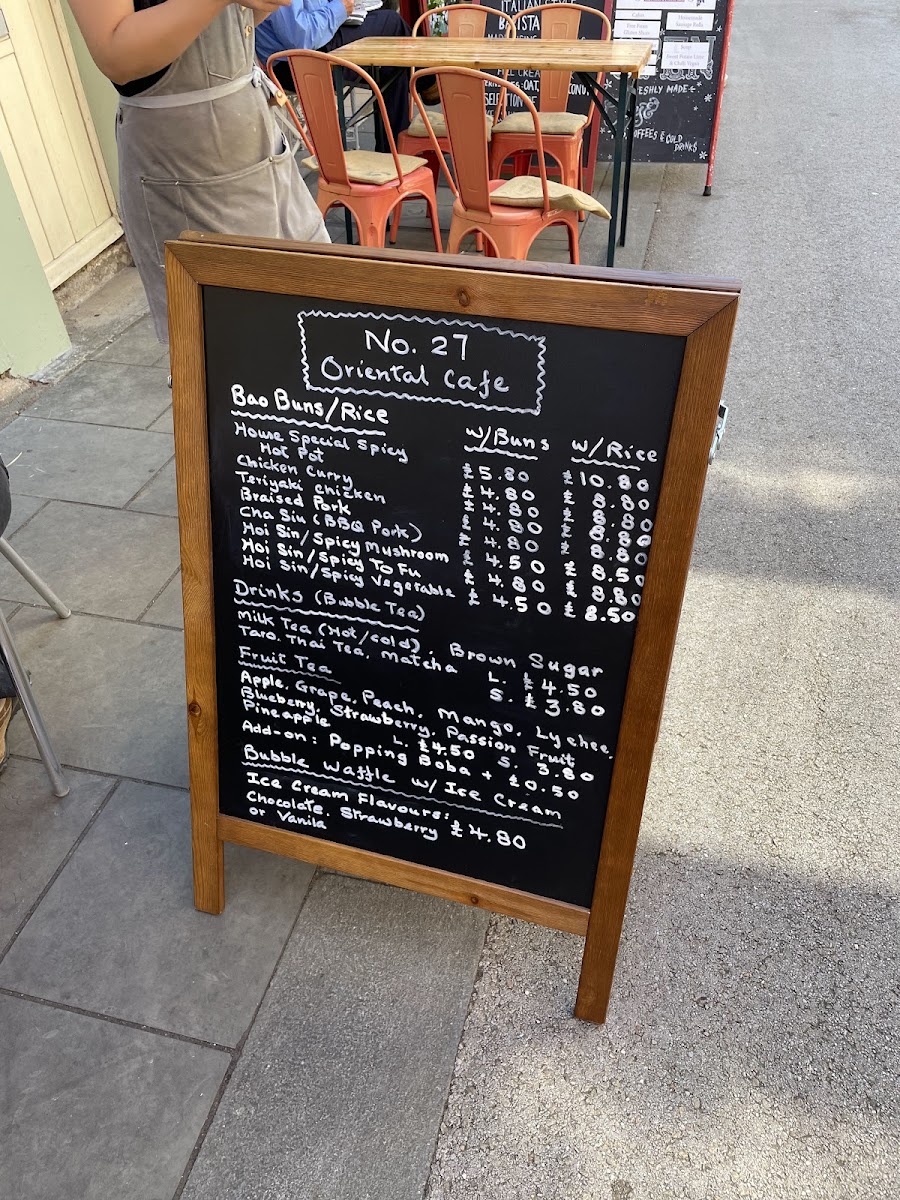 ITALIAN
BARISTA
OAT,
COCONUT,
SELECTION
Cakes
Homemade
Sausage Rolls
Soup
FRESHLY MADE
COFFEES & COLD
DRINKS
No. 27
Oriental Cafe
Bao Buns/Rice w/Buns w/Rice
House Special Spicy
Hot Pot £5.80 £10.80
Chicken Curry £4.80 £8.80
Teriyaki Chicken £4.80 £8.80
Braised Pork £4.80 £8.80
Cha Siu (BBQ Pork) £4.80 £8.80
Hoi Sin/Spicy Mushroom £4.50 £8.50
Hoi Sin/Spicy To Fu £4.80 £8.80
Hoi Sin/Spicy Vegetable £4.50 £8.50
Drinks (Bubble Tea)
Milk Tea (Hot/cold), Brown Sugar
Taro, Thai Tea, Matcha L. £4.50
Fruit Tea S. £3.80
Apple, Grape, Peach, Mango, Lychee,
Blueberry, Strawberry, Passion Fruit
Pineapple L. £4.50 S. 3.80
Add-on: Popping Boba + £0.50
Bubble Waffle w/ Ice Cream
Ice Cream Flavours:
Chocolate, Strawberry £4.80
or Vanila